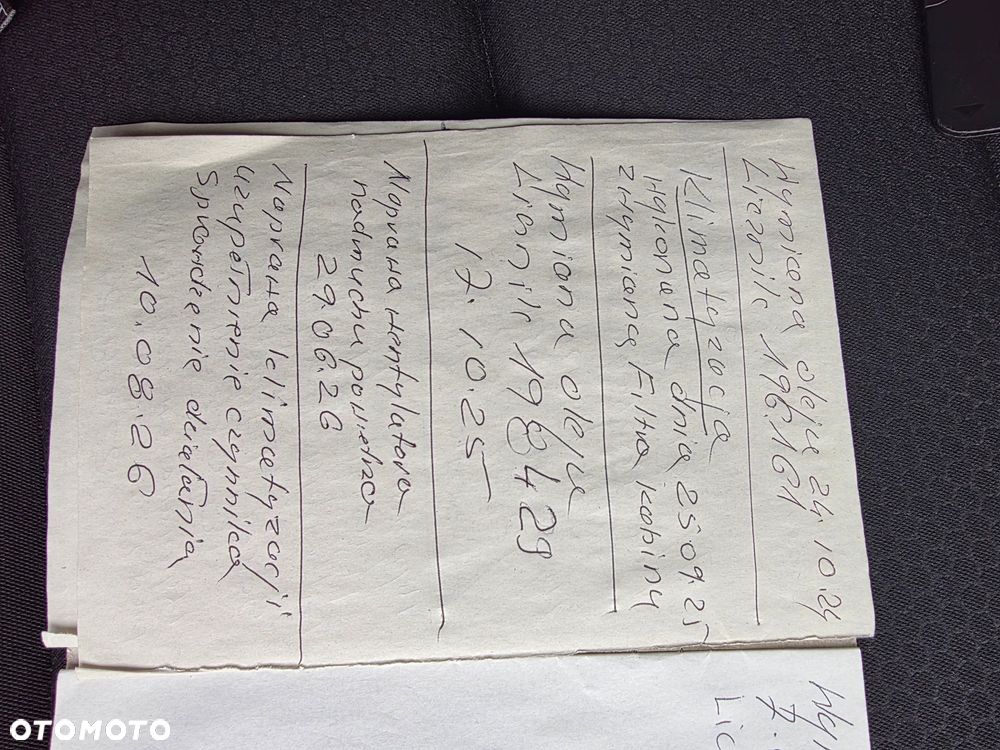 Wymiana oleju 24.10.24
Licznik 196.161
Klimatyzacja
Wykonana dnia 25.09.25
z wymianą Filtra kabiny
Wymiana oleju
Licznik 198429
17.10.25
Naprawa wentylatora
nadmuchu powietrza
29.06.26
Naprawa klimatyzacji
uzupełnienie czynnika
Sprawdzenie działania
10.08.26
Wy
7.
Lic
OTOMOTO